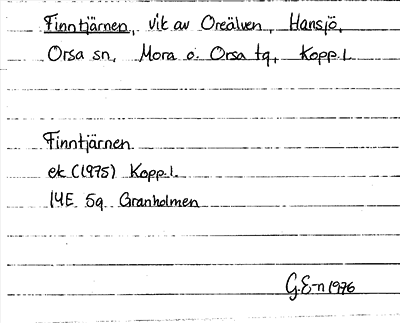 Finntjärnen, vik av Oreälven, Hansjö,
Orsa sn, Mora o. Orsa tg, Kopp.l.
Finntjärnen
ek (1975) Kopp.l.
14E 5g Granholmen
G.E-n 1976